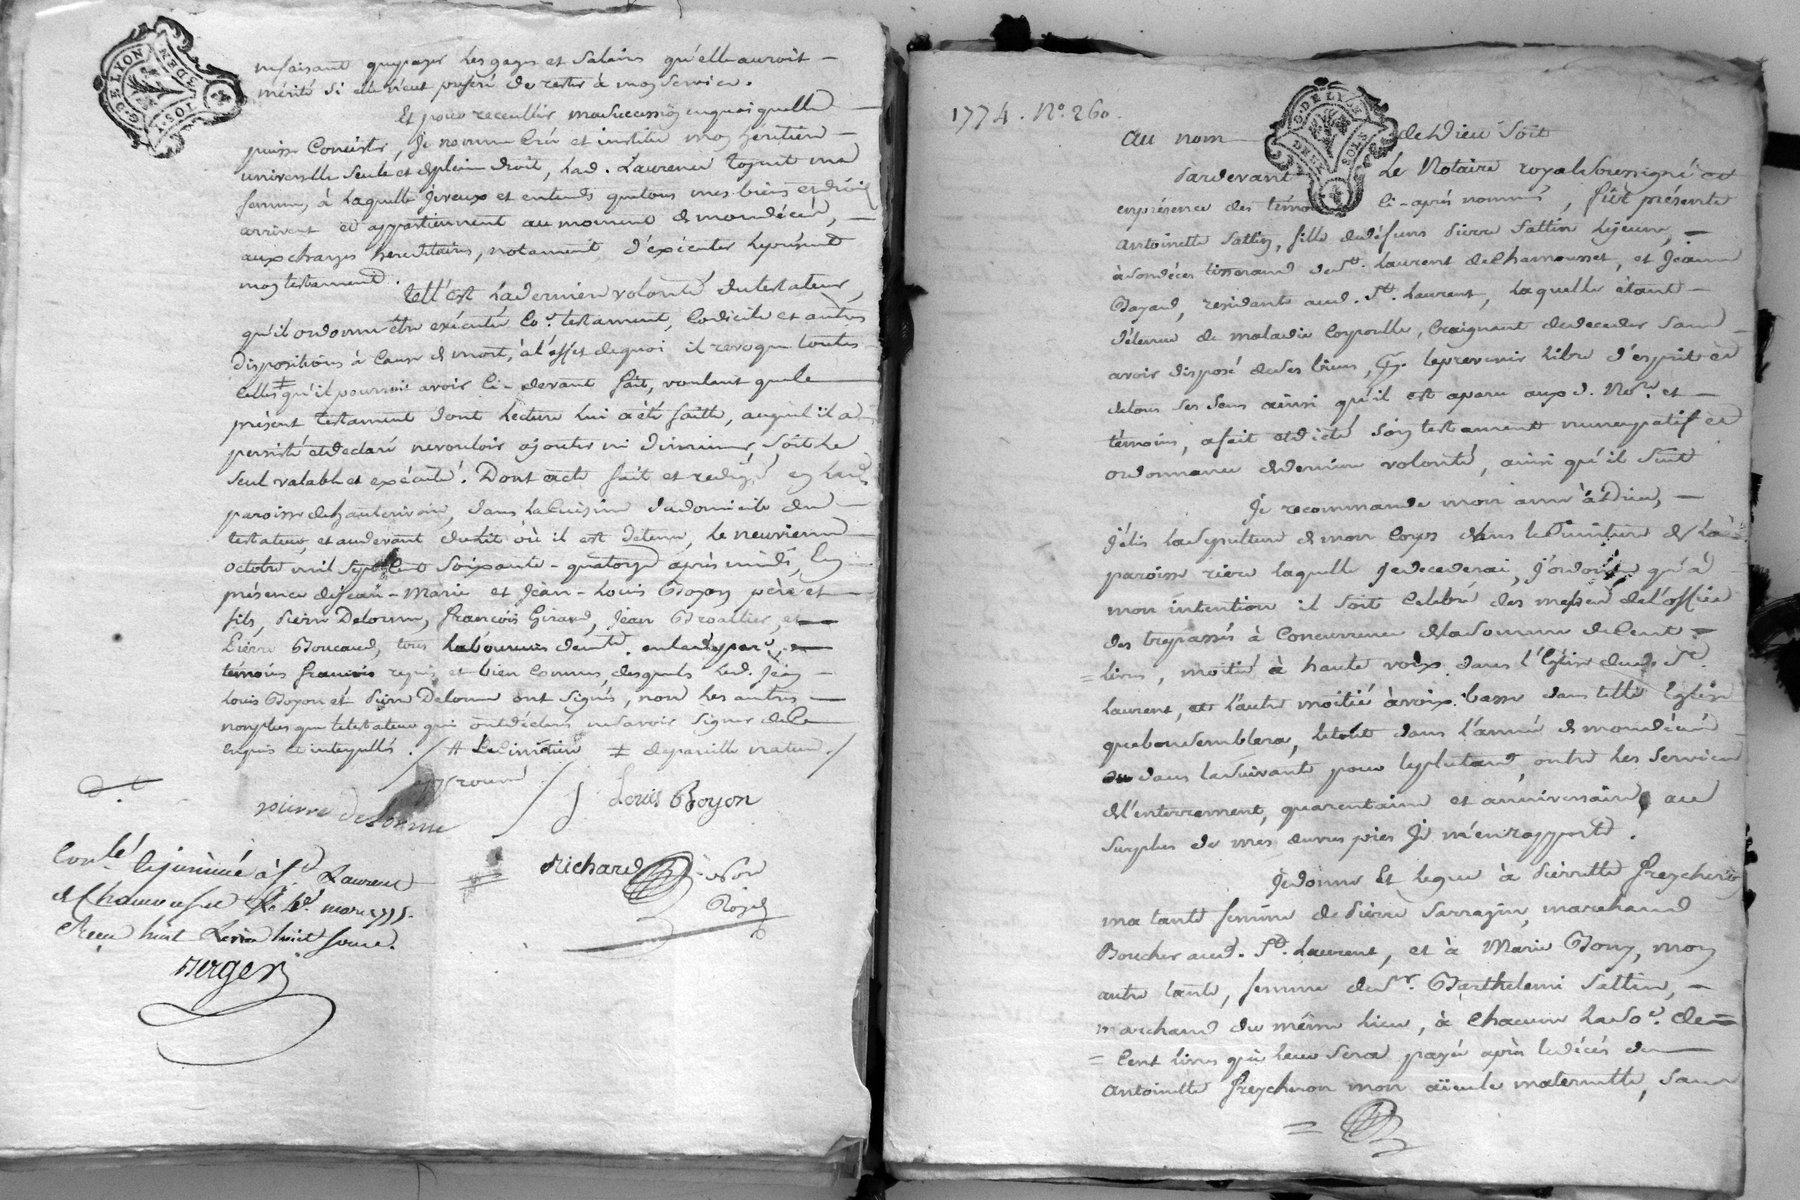 G. DE LYON
DEN
SOLS
mérité si elle n'eut préféré de rester à mon service.
Et pour receullir ma succession en quoi qu'elle
puisse consister, je nomme crée et institue mon heritière
universelle seule et de plein droit, lad. Laurence ma
femme, à laquelle je veux et entends que tous mes biens et droits
arrivent et appartiennent au moment de mon décès,
aux charges hereditaires, notament d'exécuter le présent
mon testament.
Tell'est la derniere volonté du testateur,
qu'il ordonne être exécutée co.e testament, codicile et autres
dispositions à cause de mort, à l'effet de quoi il revoque toutes
celles qu'il pourroit avoir ci-devant fait, voulant que le
présent testament dont lecture lui a été faitte, auquel il a
persisté et declaré ne vouloir ajouter ni diminuer, soit le
seul valable et exécuté. Dont acte fait et redigé en lad.
paroisse de hauterivoire, dans la cuisine du domicile du
testateur, et au devant du lit où il est detenu, le neuvieme
octobre mil sept cent soixante-quatorze après midi, en
présence de Jean-Marie et Jean-Louis Boyon père et
fils, Pierre Delorme, François Girard, Jean Broallier, et
Pierre Boucaud, tous laboureurs
témoins françois requis et bien connus desquels led. Jean
Louis Boyon et Pierre Delorme ont signés, non les autres
non plus que le testateur qui ont déclaré ne savoir signer de ce
enquis et interpellés.
approuvé
pierre delorme
Louis Boyon
Richard
Not.
Royal
Con.lé
& insinué à S.t Laurent
de Chamousset le mars 1775.
Reçu huit livres huit sous.
Berger
1774. N.o 260.
G. DE LYON
DEUX
SOLS
Au nom de Dieu soit
Pardevant Le Notaire royal soussigné et
en présence des témoins ci-après nommés, fut présente
antoinette Sattin, fille de défunt Pierre Sattin le jeune,
à son décès tisserand de S.t Laurent de Chamousset, et Jeanne
Bayard, residante aud. S.t Laurent, laquelle étant
détenue de maladie corporelle, craignant de deceder sans
avoir disposé de ses biens, p.r le prevenir libre d'esprit et
de tous ses sens ainsi qu'il est aparu aux d. No.re et
témoins, a fait et dicté son testament nuncupatif et
ordonnance de derniere volonté, ainsi qu'il suit
Je recommande mon ame à Dieu,
j'élis la sepulture de mon corps dans le cimitiere de la
paroisse riere laquelle je decederai, j'ordonne qu'à
mon intention il soit celebré des messes de l'office
des trepassés à concurrence de la somme de cent
livres, moitié à haute voix dans l'Eglise dud. S.t
Laurent, et l'autre moitié à voix basse dans telle Eglise
que bon semblera, le tout dans l'année de mon décès
ou dans la suivante pour le plus tard, outre les services
de l'enterrement, quarantaine et anniversaire, au
surplus de mes œuvres pies je m'en rapporte.
Je donne et legue à Pierrette Freycheron
ma tante femme de Pierre Sarragin, marchand
Boucher aud. S.t Laurent, et à Marie Bony, mon
autre tante, femme de S.r Barthelemi Sattin,
marchand du même lieu, à chacune la so.e de
cent livres qui leur sera payée après le décès de
antoinette Freycheron mon aïeule maternelle, sans